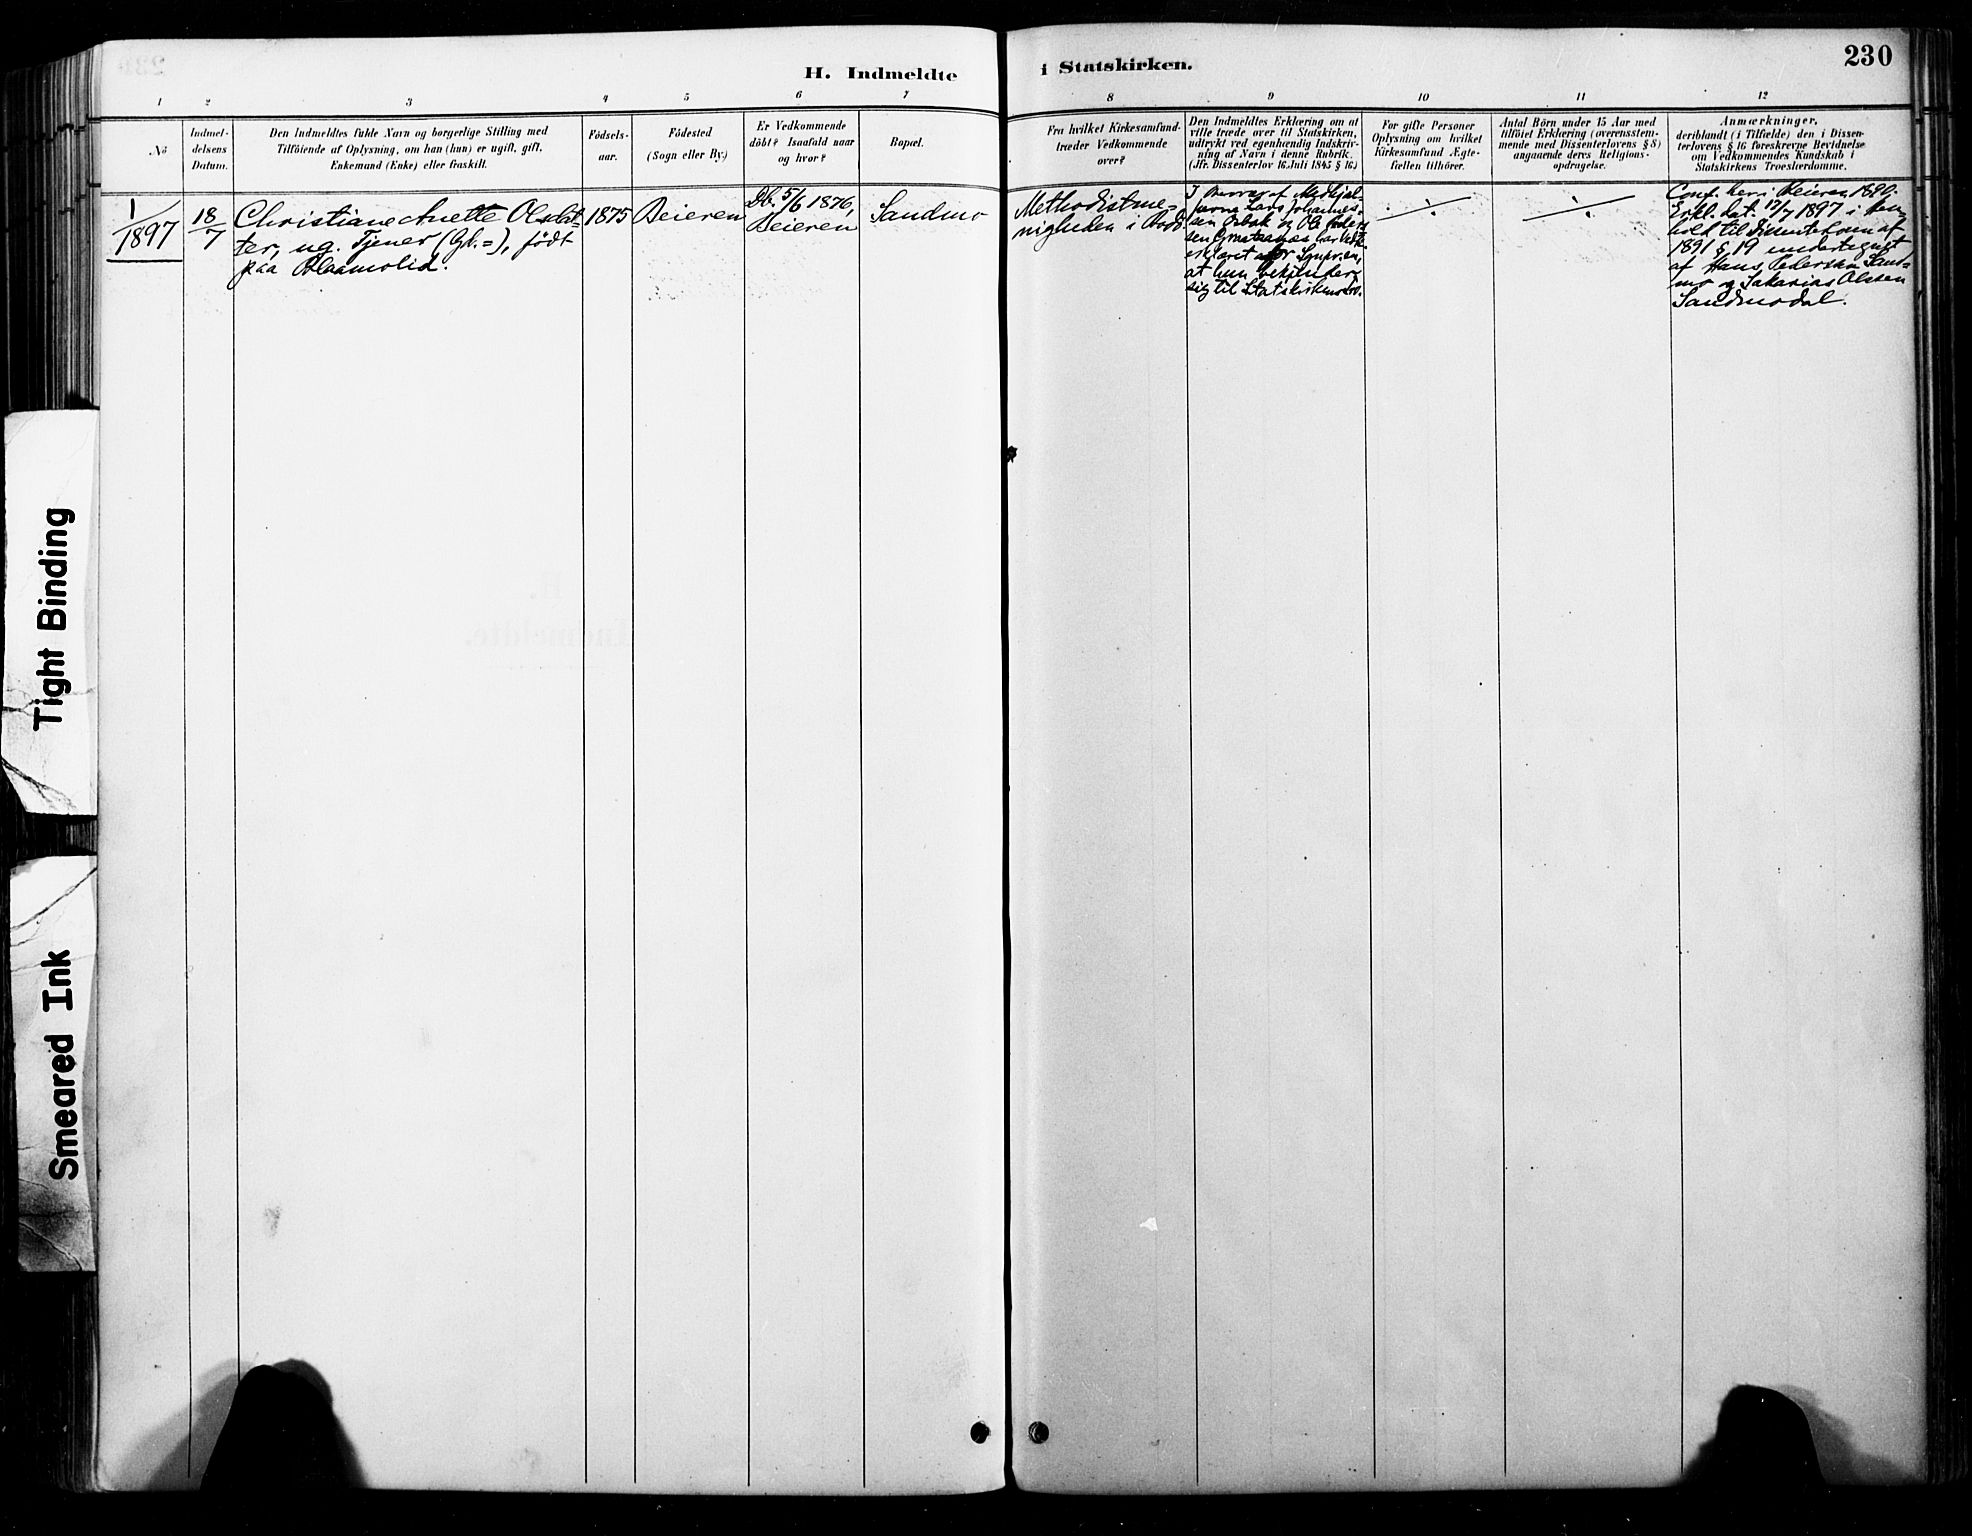 230
H. Indmeldte
i Statskirken.
1 2 3 4 5 6 7
8 9 10 11 12
No
Indmel-
delsens
Datum.
Den Indmeldtes fulde Navn og borgerlige Stilling med
Tilföiende af Oplysning, om han (hun) er ugift, gift,
Enkemand (Enke) eller fraskilt.
Födsels-
aar.
Födested
(Sogn eller By.)
Er Vedkommende
döbt? Isaafald naar
og hvor?
Bopæl.
Fra hvilket Kirkesamfund
træder Vedkommende
over?
Den Indmeldtes Erklæring om at
ville træde over til Statskirken,
udtrykt ved egenhendig Indskriv-
ning af Navn i denne Rubrik.
(Jfr. Dissenterlov 16 Juli 1845 § 16.)
For gifte Personer
Oplysning om hvilket
Kirkesamfund Ægte-
fællen tilhörer.
Antal Börn under 15 Aar med
tilföiet Erklæring (overensstem-
mende med Dissenterlovens § 8)
angaaende deres Religions-
opdragelse.
Anmærkninger,
deriblandt (i Tilfælde) den i Dissen-
terlovens § 16 foreskrevne Bevidnelse
om Vedkommendes Kundskab i
Statskirkens Troeslærdomme.
1/1897
18/7
Christiane Anette Olsdat-
ter, ug. Tjener (Gb.=), født
paa
1875
Beieren
Db. 5/6 1876,
Beieren
Sandmo
Methodistme-
nigheden i Bodö.
I Overvær af Medhjæl-
perne Lars Johannes-
sen og Ole
sen har Vedk.
erklæret for Sognepr.
at hun bekjender
sig til Statskirkens
÷
÷
Conf. her i Beieren 1890.
Erkl. dat. 17/7 1897 i Hen-
hold til Dissenterloven af
1891 § 19 undertegnet
af Hans Pedersen Sand-
mo og Sakarias Olsen
Sandmodal.
Tight Binding
Smeared Ink
H.
Indmeldte.